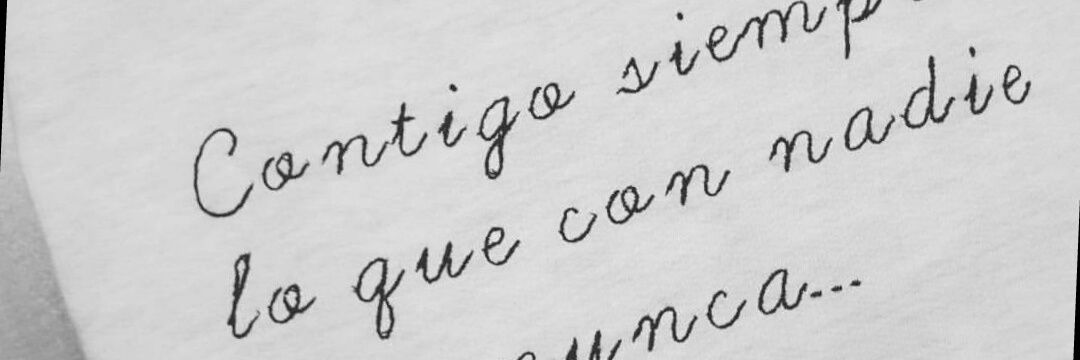 Contigo siempre
lo que con nadie
nunca...